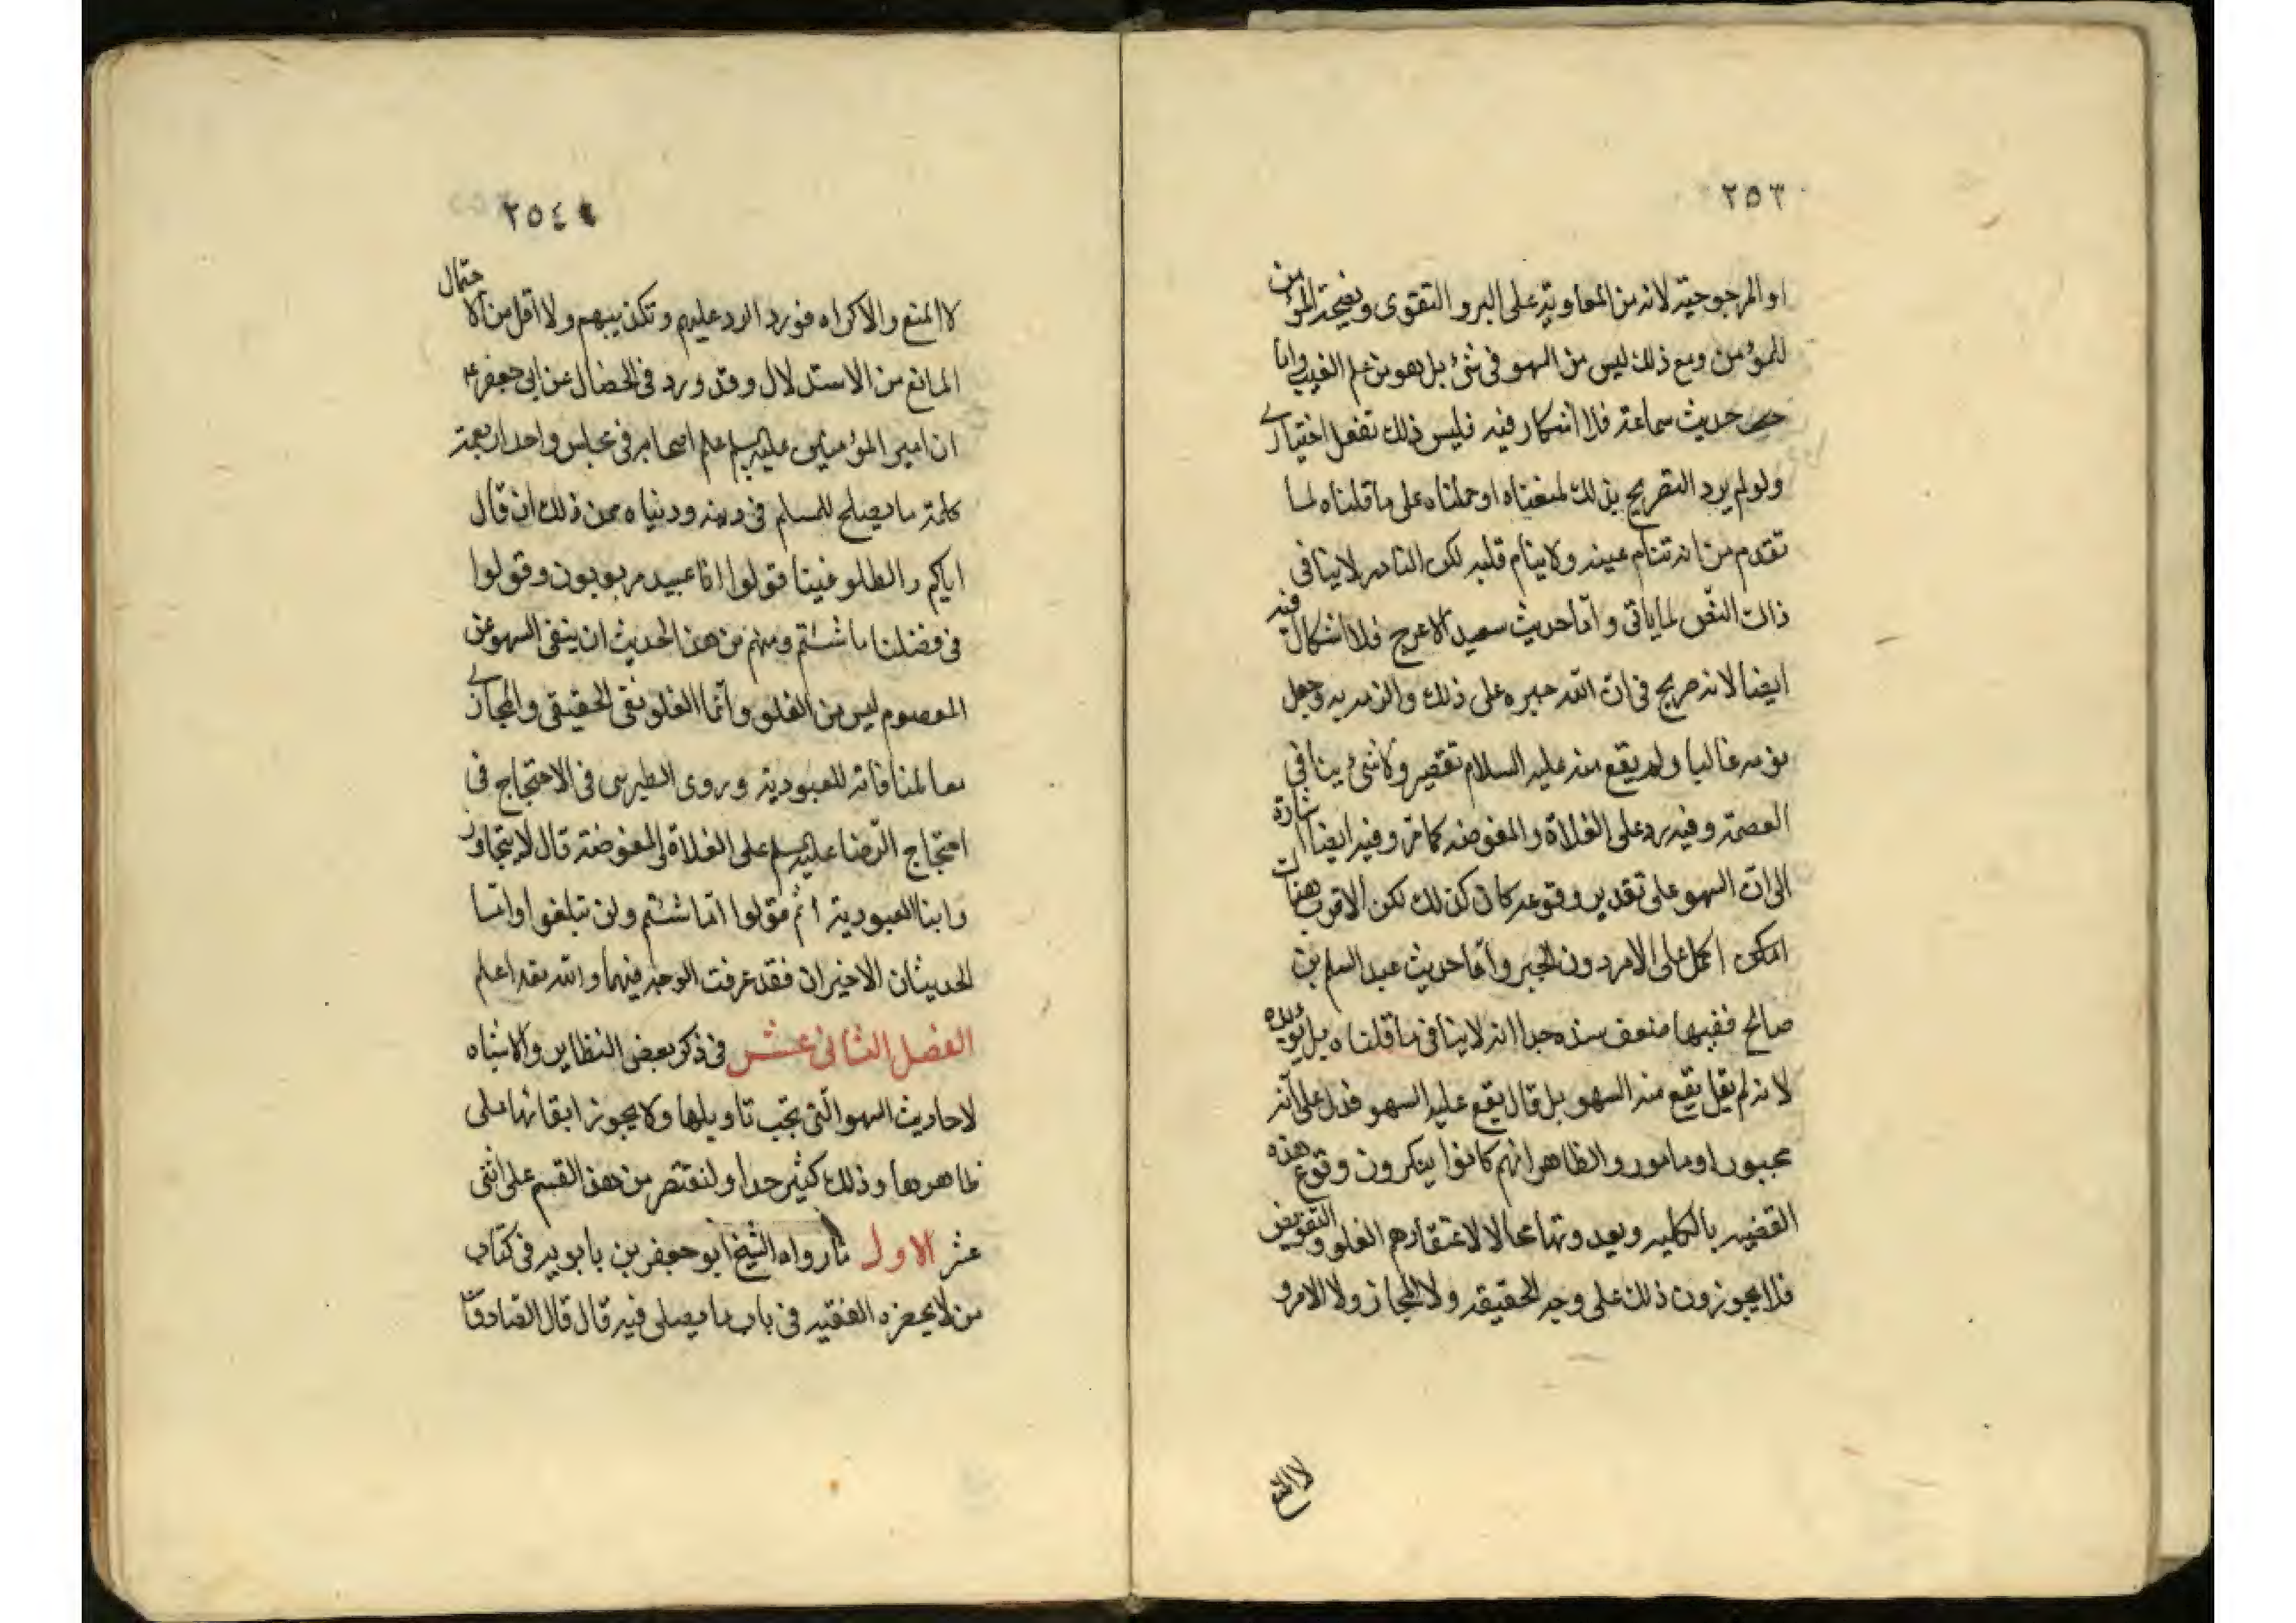 ٢٥٣
او المرجوحية لانه من المعاونة على البر والتقوى ونصيحة المؤمن
للمؤمن ومع ذلك ليس من السهو في شئ بل هو من علم الغيب واما
حديث سماعة فلا اشكار فيه فليس ذلك تفعل اختياري
ولو لم يرد التصريح بذلك لمنعناه او حملناه على ما قلناه لما
تقدم من انه تنام عينه ولا ينام قلبه لكن النادر لا ينافي
ذلك النص لما ياتي واما حديث سعيد الاعرج فلا اشكال فيه
ايضا لانه صريح في ان الله جبره على ذلك والزمه به وجعل
نومه غالبا ولم يقع منه عليه السلام تقصير ولا شئ ينافي
العصمة وفيه رد على الغلاة والمفوضه كما مر وفيه ايضا اشارة
الى ان السهو على تقدير وقوعه كان كذلك لكن الاقرب هنا ان
امكن الحمل على الامر دون الجبر واما حديث عبد السلم بن
صالح ففيها ضعف سنده جدا انه لا ينافي ما قلناه بل يؤيده
لانه لم يقل يقع منه السهو بل قال يقع عليه السهو فدل على انه
مجبور او مامور والظاهر انهم كانوا ينكرون وقوع هذه
القضيه بالكليه ويعدونها محالا لاعتقادهم الغلو والتفويض
فلا يجوزون ذلك على وجه الحقيقه ولا المجاز ولا الامر و
لا المنع
٢٥٤
لا المنع والاكراه فورد الرد عليهم وتكذيبهم ولا اقل من الاحتمال
المانع من الاستدلال وقد ورد في الخصال عن ابي جعفر ع
ان امير المؤمنين عليه السلم علم اصحابه في مجلس واحد اربعمة
كلمة ما يصلح للمسلم في دينه ودنياه ممن ذلك ان قال
اياكم والطلو فينا فقولوا انا عبيد مربوبون وقولوا
في فضلنا ما شئتم ومنهم من هذا الحديث ان ينفى السهو عن
المعصوم ليس من الغلو وانما الغلو نفى الحقيقي والمجازي
معا لمنافاته للعبودية وروى الطبرسي في الاحتجاج في
احتجاج الرضا عليه السلم على الغلاة والمفوضة قال لا يتجاوز
وابنا العبودية ثم قولوا انا ما شئتم ولن تبلغوا واما
الحديثان الاخيران فقد عرفت الوجه فيهما والله بقد اعلم
الفصل الثاني عشر في ذكر بعض النظاير والاشباه
لاحاديث السهو التي يجب تاويلها ولا يجوز ابقائها على
ظاهرها وذلك كثير جدا ولنقتصر من هذا القسم على اثنى
عشر الاول ما رواه الشيخ ابو جعفر بن بابويه في كتاب
من لا يحضره الفقيه في باب ما يصلى فيه قال قال الصادق ع